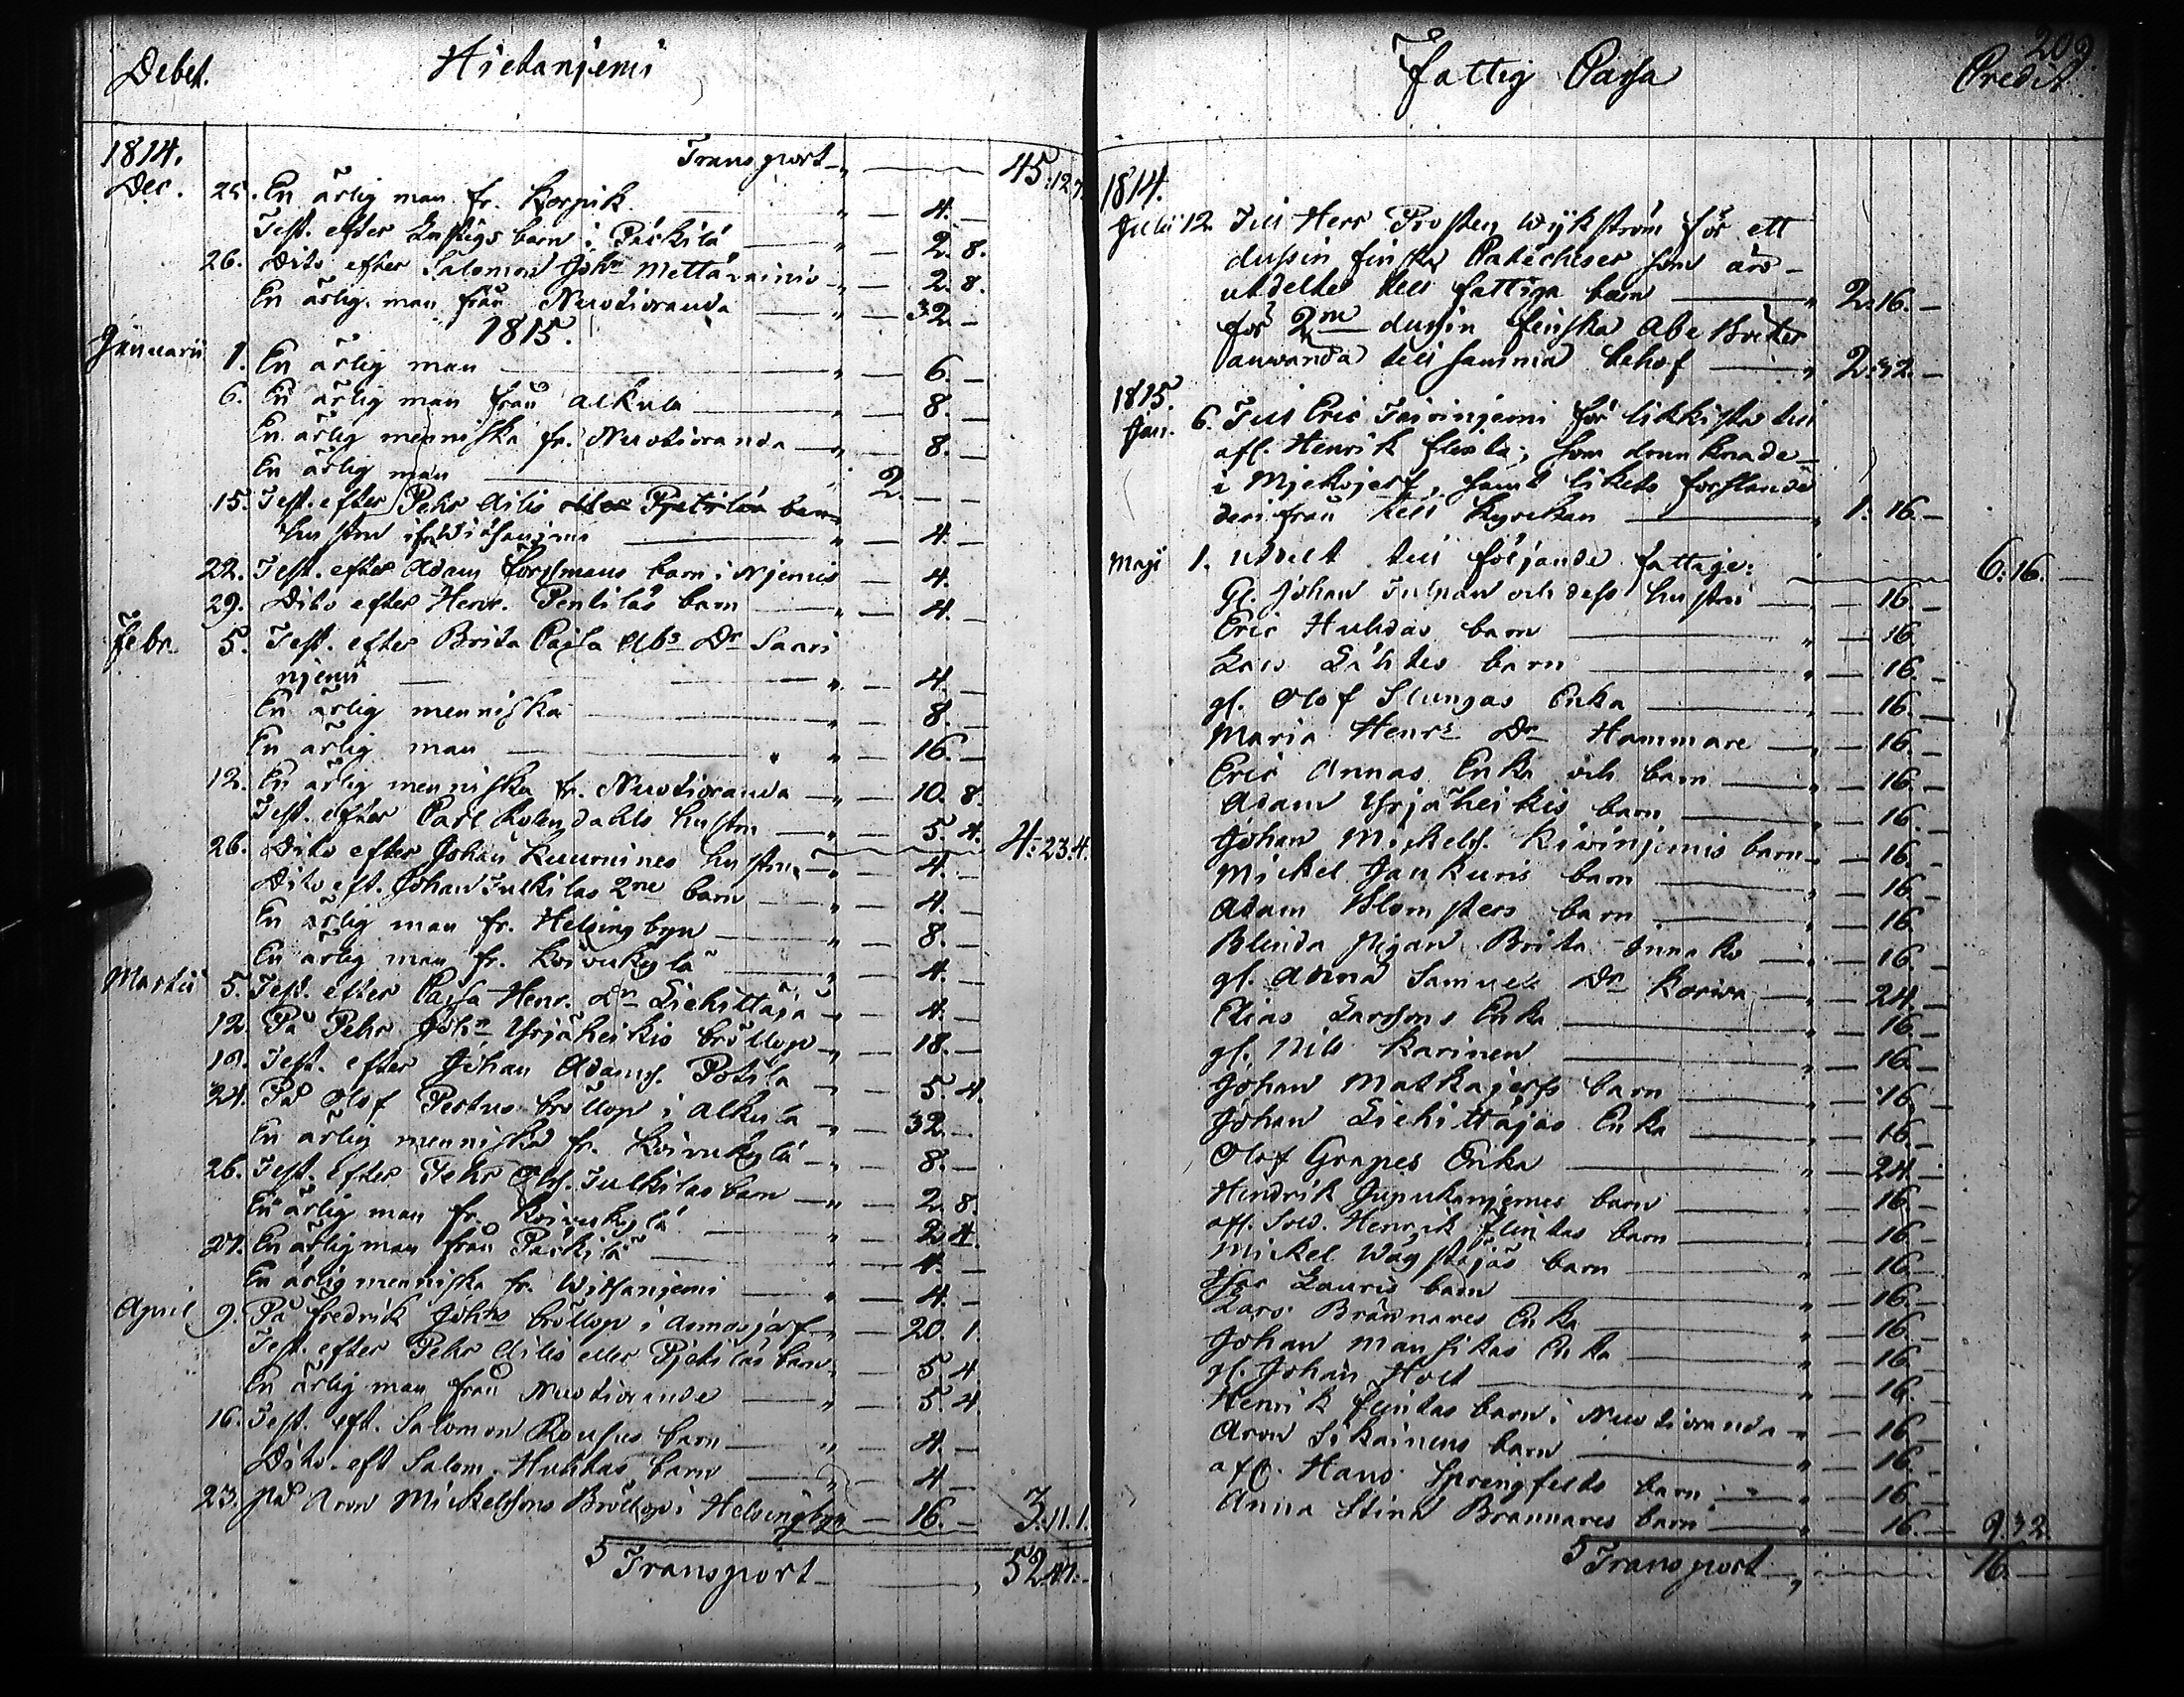 Debet. Hietaniemi
1814. Transport 45:12.7.
Dec. 25. En ärlig man fr. Korpik. 4.
Test. efter Lustigs barn i Päckilä 2. 8.
26. Dito efter Salomon Johns Mettävainio 2. 8.
En ärlig man från Nuotioranda 32.
1815.
Januarii 1. En ärlig man 6.
6. En ärlig man från Alkula 8.
En ärlig menniska fr. Nuotioranda 8.
En ärlig man 2.
15. Test. efter Pehr Ailis barn
hustru ifr. Witsaniemi 4.
22. Test. efter Adam Forssmans barn i Njemis 4.
29. Dito efter Henr. Pentiläs barn 4.
Febr. 5. Test. efter Brita Cajsa Abs Dr Saari
njemi 4.
En ärlig menniska 8.
En ärlig man 16.
12. En ärlig menniska fr. Nuotioranda 10. 8.
Test. efter Carl Rolendahls hustru 5. 4. 4:23:4.
26. Dito efter Johan Kuurnines hustru 4.
Dito eft. Johan Julkilas 2ne barn 4.
En ärlig man fr. Helsingbyn 8.
En ärlig man fr. Koivukylä 4.
Martii 5. Test. efter Cajsa Henr. Dr Liehittäjä 4.
12. På Pehr Johns Yrjäheikis bröllop 18.
19. Test. efter Johan Adams. Potila 5. 4.
24. På Olof Pertus bröllop i Alkula 32.
En ärlig menniska fr. Koivukylä 8.
26. Test. efter Pehr Olofs. Julkilas barn 2. 8.
En ärlig man fr. Koivukylä 2. 4.
27. En ärlig man från Päckilä 4.
En ärlig menniska fr. Witsaniemi 4.
April 9. På Fredrik Johns bröllop i Armasjärf 20. 1.
Test. efter Pehr Ailis eller Pjetiläs barn 5. 4.
En ärlig man från Nuotioranda 5. 4.
16. Test. eft. Salomon Rousus barn 4.
Dito eft Salom. Huhtas barn 4.
23. på Aron Mickelssons Bröllop i Helsingbyn 16. 3.11.1.
Transport 52.
209.
Fattig Cassa Credit
1814.
Julii 12. Till Herr Prosten Wijkström för ett
dussin finska Catecheser som äro
utdelte till fattiga barn 2:16.
för 2ne dussin finska Abc Böcker
anwända till samma behof 2:32.
1815.
Jan. 6. Till Eric Toivinjemi för likkista till
afl. Henrik Flinta, som drunknade
i Mjekojerf, samt likets forslande
derifrån till kyrckan 1. 16. 6:16.
Maji 1. utdelt till följande fattige:
Gl. Johan Juhnan och dess hustru 16.
Eric Huhdas barn 16.
Lars Lähtes barn 16.
gl. Olof Slungas Enka 16.
Maria Henrs Dr Hammare 16.
Eric Annas Enka och barn 16.
Adam Yrjäheikis barn 16.
Johan Mickels. Kivinjemis barn 16.
Mickel Jankuris barn 16.
Adam Blomsters barn 16.
Blinda pigan Brita Innako 16.
gl. Anna Samuels Dr Korwa 24.
Elias Larssons Enka 16.
gl. Nils Karinen 16.
Johan Matkajerfs barn 16.
Johan Liehittäjäs Enka 16.
Olof Grapes Enka 24.
Hindrik Jupukanjemis barn 16.
afl. Sold. Henrik Flintas barn 16.
Mickel Wägstäjäs barn 16.
Isac Lauris barn 16.
Lars Brännares Enka 16.
Johan Mansikas Enka 16.
gl. Johan Holt 16.
Henrik Flintas barn i Nuotioranda 16.
Aron Sikainens barn 16.
afl. Hans Springfelts barn 16.
Anna Stina Brännares barn 16. 9.32.
Transport 16.